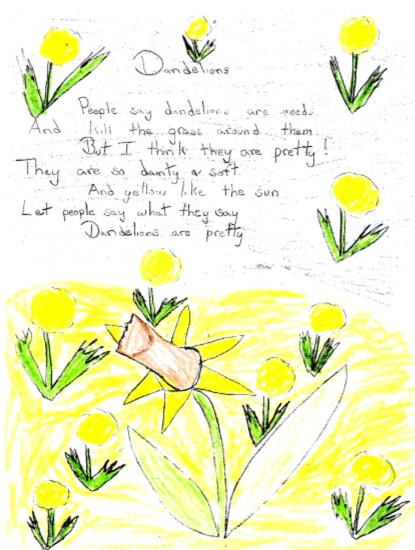 Dandelions
People say dandelions are weeds
And kill the grass around them
But I think they are pretty!
They are so dainty & soft
And yellow like the sun
Let people say what they say
Dandelions are pretty